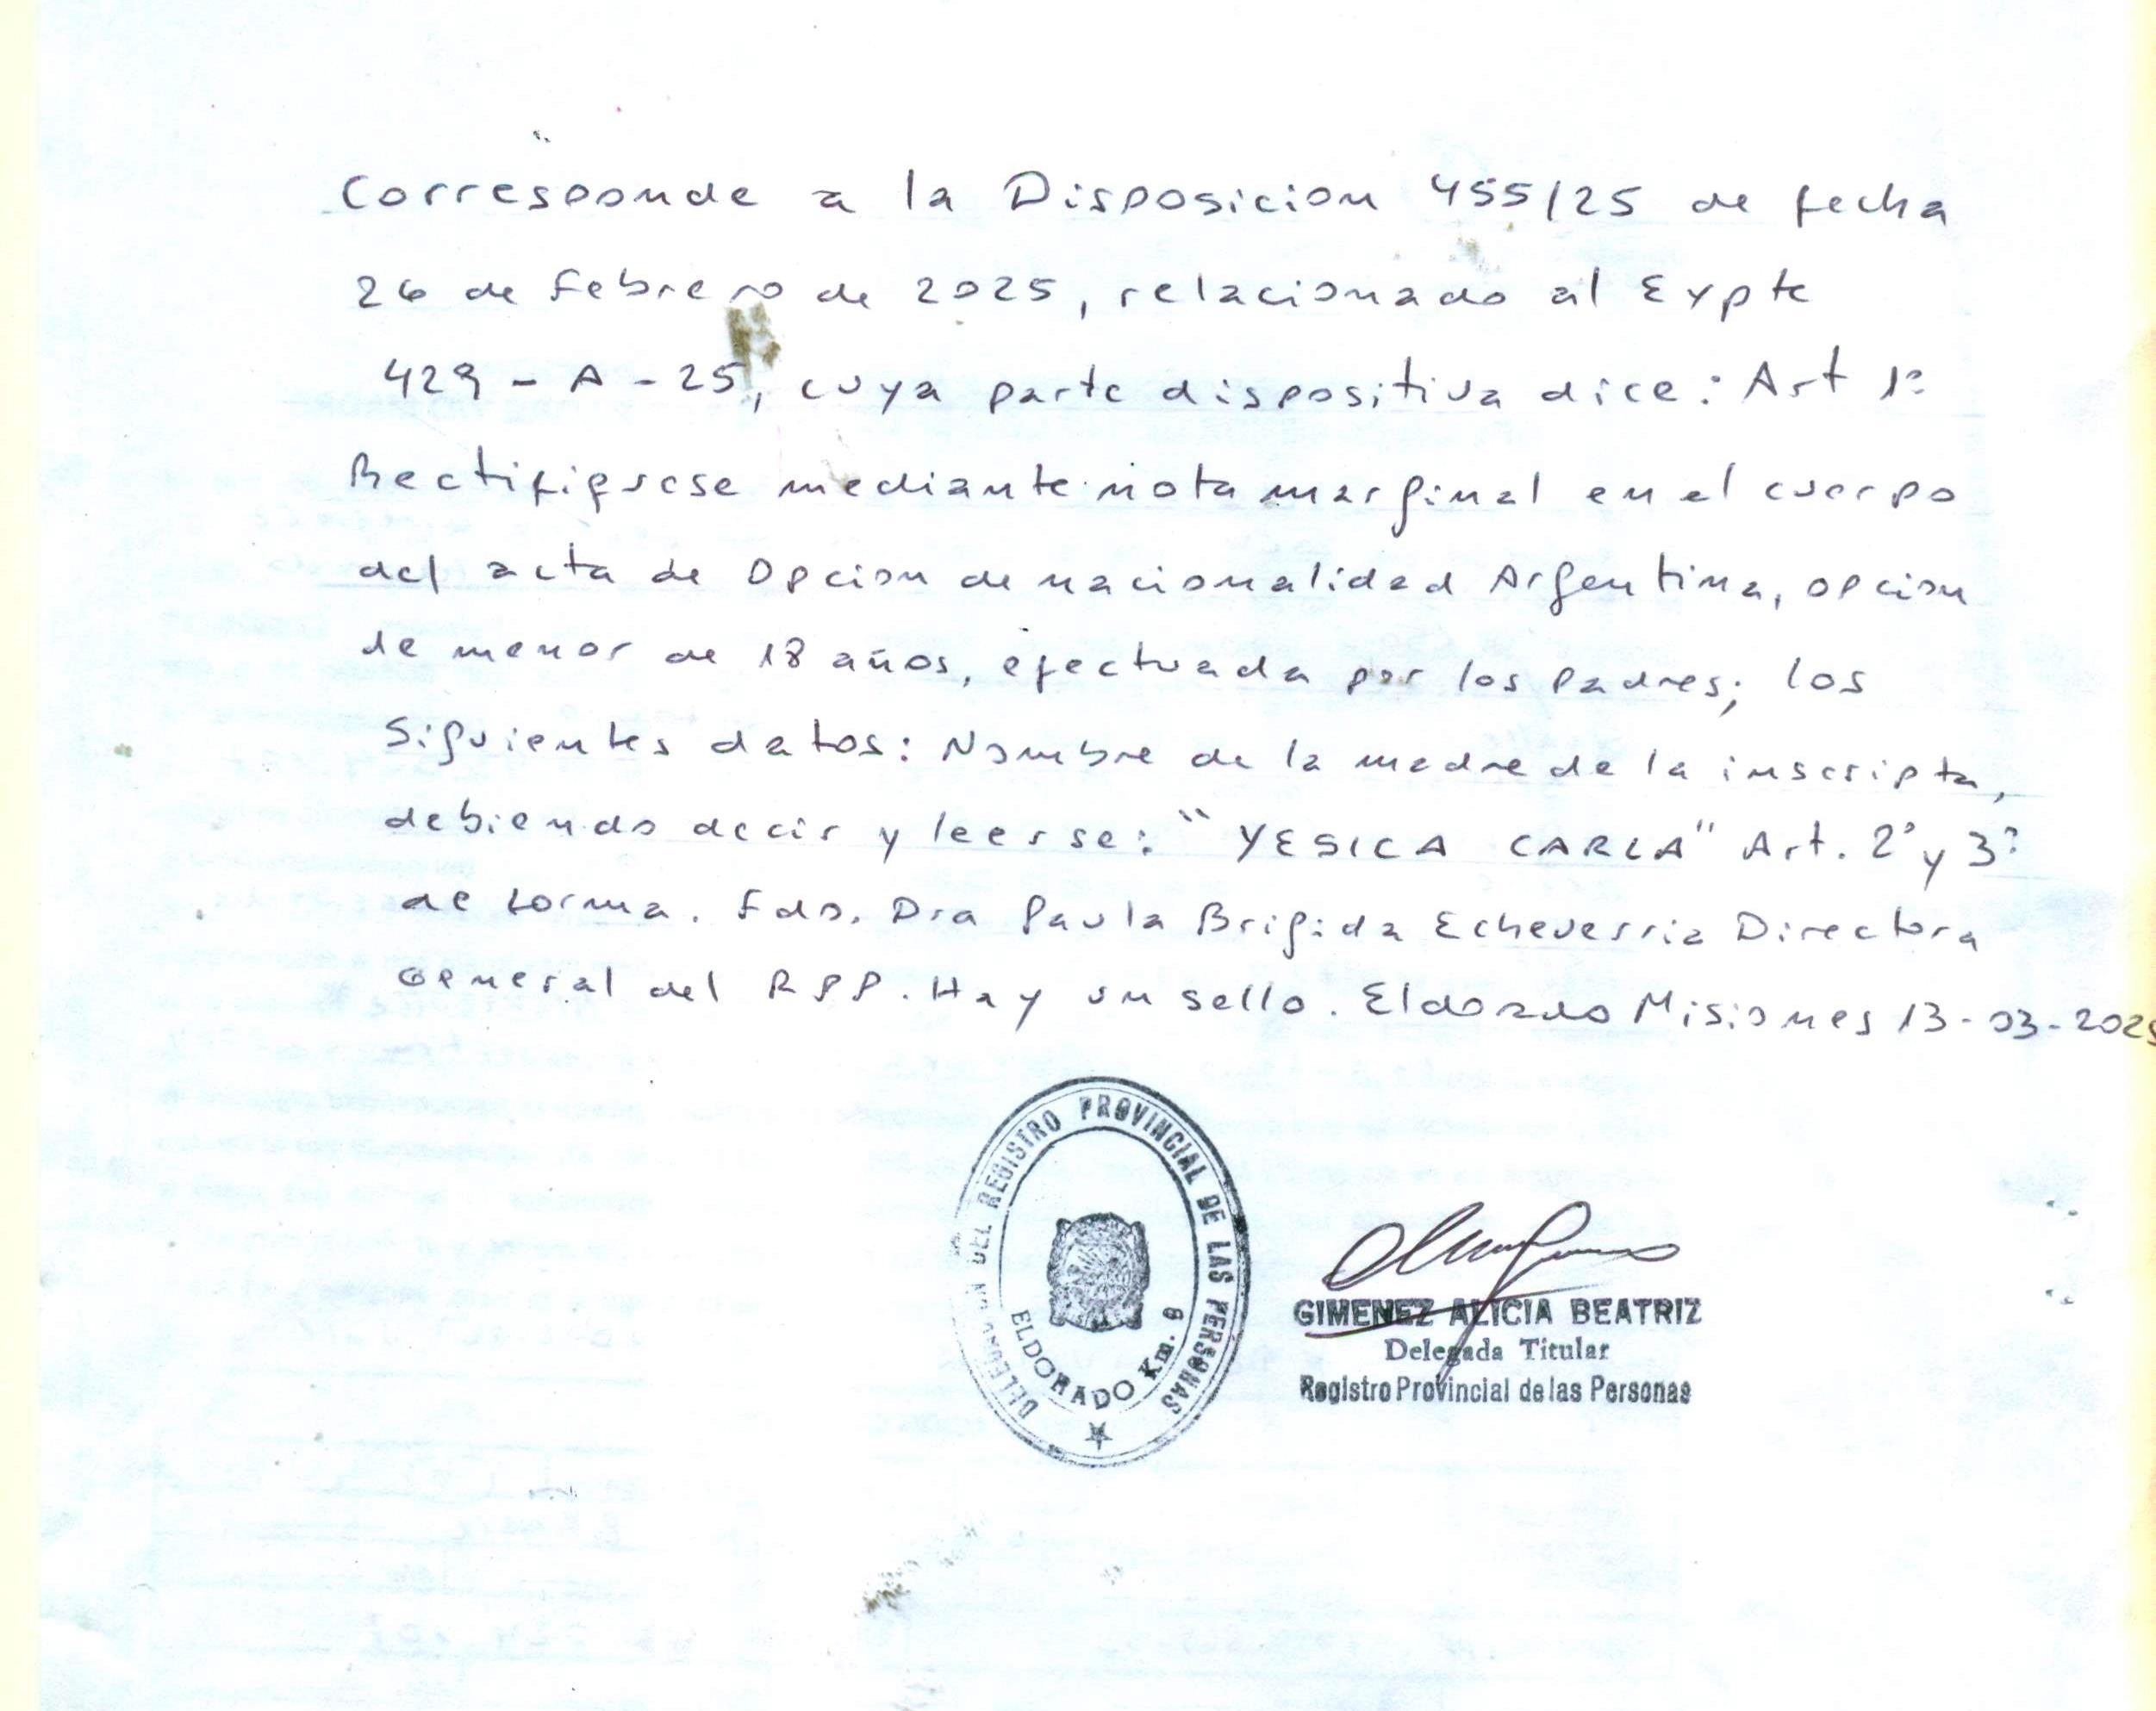 Corresponde a la Disposicion 455/25 de fecha
26 de febrero de 2025, relacionado al Expte
429 - A - 25, cuya parte dispositiva dice: Art 1º
Rectifiquese mediante nota marginal en el cuerpo
del acta de Opcion de nacionalidad Argentina, opcion
de menor de 18 años, efectuada por los Padres; los
Siguientes datos: Nombre de la madre de la inscripta,
debiendo decir y leerse: "YESICA CARLA" Art. 2º y 3º
de forma. Fdo. Dra Paula Brigida Echeverria Directora
General del RPP. Hay un sello. Eldorado Misiones 13-03-2025
DELEGACION DEL REGISTRO PROVINCIAL DE LAS PERSONAS
ELDORADO Km. 9
GIMENEZ ALICIA BEATRIZ
Delegada Titular
Registro Provincial de las Personas